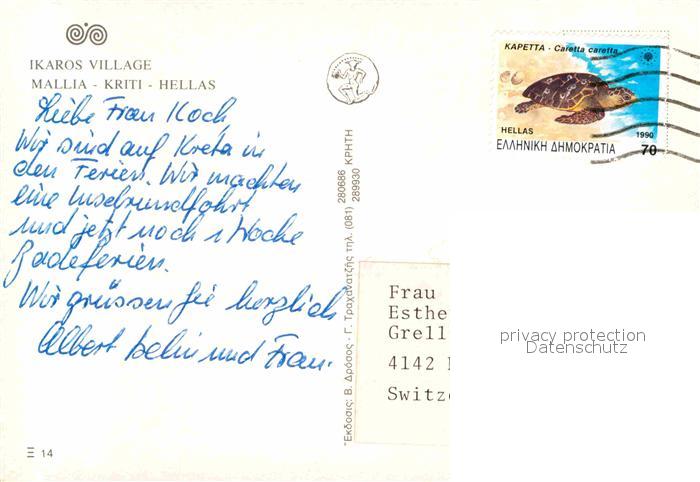 IKAROS VILLAGE
MALLIA - KRITI - HELLAS
Liebe Frau Koch
Wir sind auf Kreta in
den Ferien. Wir machten
eine Inselrundfahrt
und jetzt noch 1 Woche
Badeferien.
Wir grüssen Sie herzlich
Albert und Frau.
Ξ 14
Ἔκδοσις: Β. Δρόσος - Γ. Τραχανατζῆς τηλ. (081) 280686 ΚΡΗΤΗ
289930
ΚΑΡΕΤΤΑ - Caretta caretta
HELLAS
1990
ΕΛΛΗΝΙΚΗ ΔΗΜΟΚΡΑΤΙΑ
70
Frau
Esthe
Grell
4142
Switz
privacy protection
Datenschutz